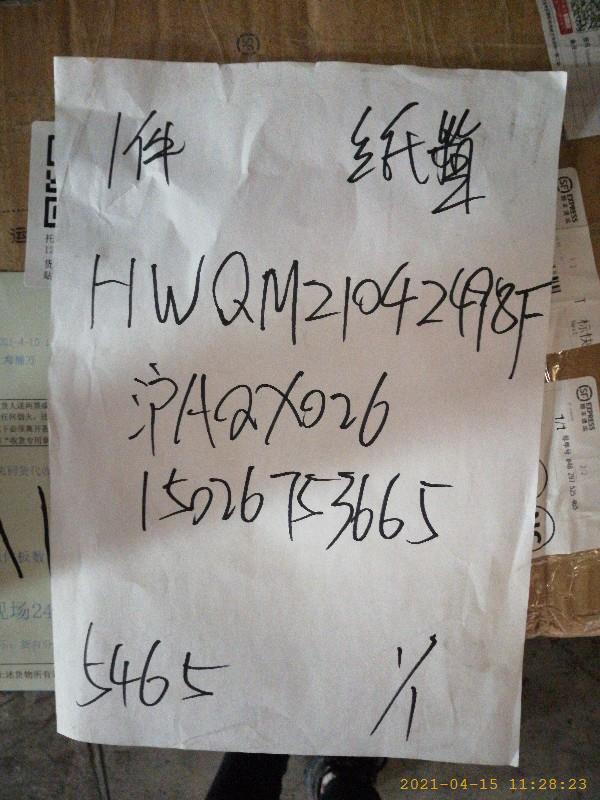 1件 纸箱
HWQM21042498F
沪AQX026
15026753665
5465 1/1
EXPRESS
EXPRESS
2021-04-15 11:28:23